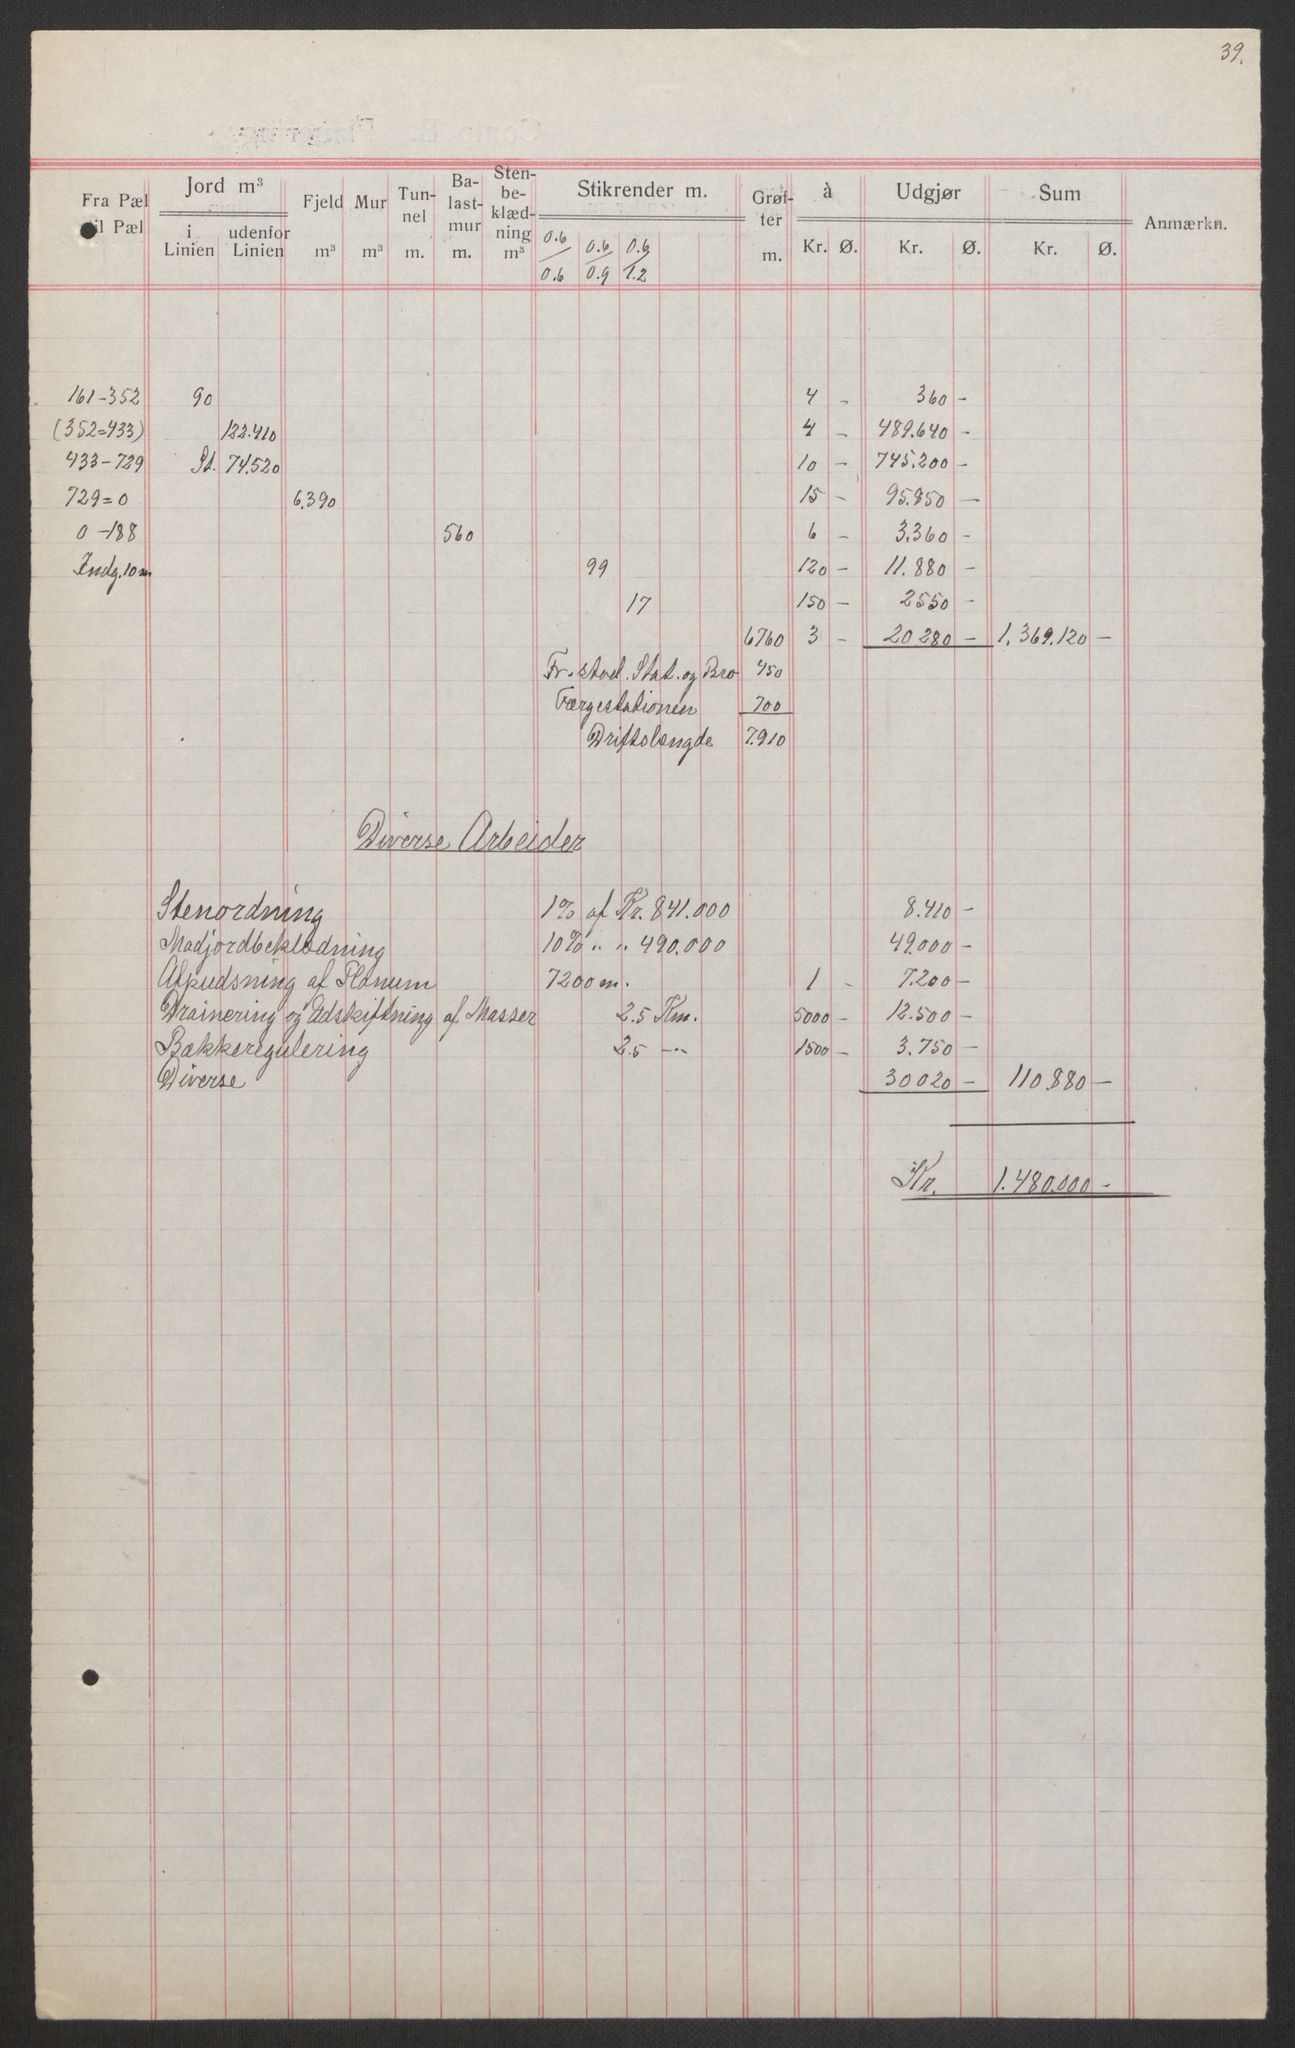 39.
Fra Pæl
til Pæl
Jord m³
i Linien
udenfor Linien
Fjeld m³
Mur m³
Tunnel m.
Balastmur m.
Stenbeklædning m³
Stikrender m.
0.6/0.6 0.6/0.9 0.6/1.2
Grøfter m.
à
Kr. Ø.
Udgjør
Kr. Ø.
Sum
Kr. Ø.
Anmærkn.
161-352 90 4 - 360 -
(352=433) 122.410 4 - 489.640 -
433-729 St. 74.520 10 - 745.200 -
729=0 6.390 15 - 95.850 -
0-188 560 6 - 3.360 -
Indg. 10 m 99 120 - 11.880 -
17 150 - 2550 -
6760 3 - 20280 - 1.369.120 -
Fr.stad. Stat. og Bro 450
Færgestationen 700
Driftslængde 7.910
Diverse Arbeider
Stenordning 1% af Kr. 841.000 8.410 -
Madjordbeklædning 10% " " 490.000 49.000 -
Afpudsning af Planum 7200 m. 1 - 7.200 -
Drainering og Udskiftning af Masser 2.5 Km. 5000 - 12.500 -
Bækkeregulering 2.5 -"- 1500 - 3.750 -
Diverse 30020 - 110.880 -
Kr. 1.480.000 -